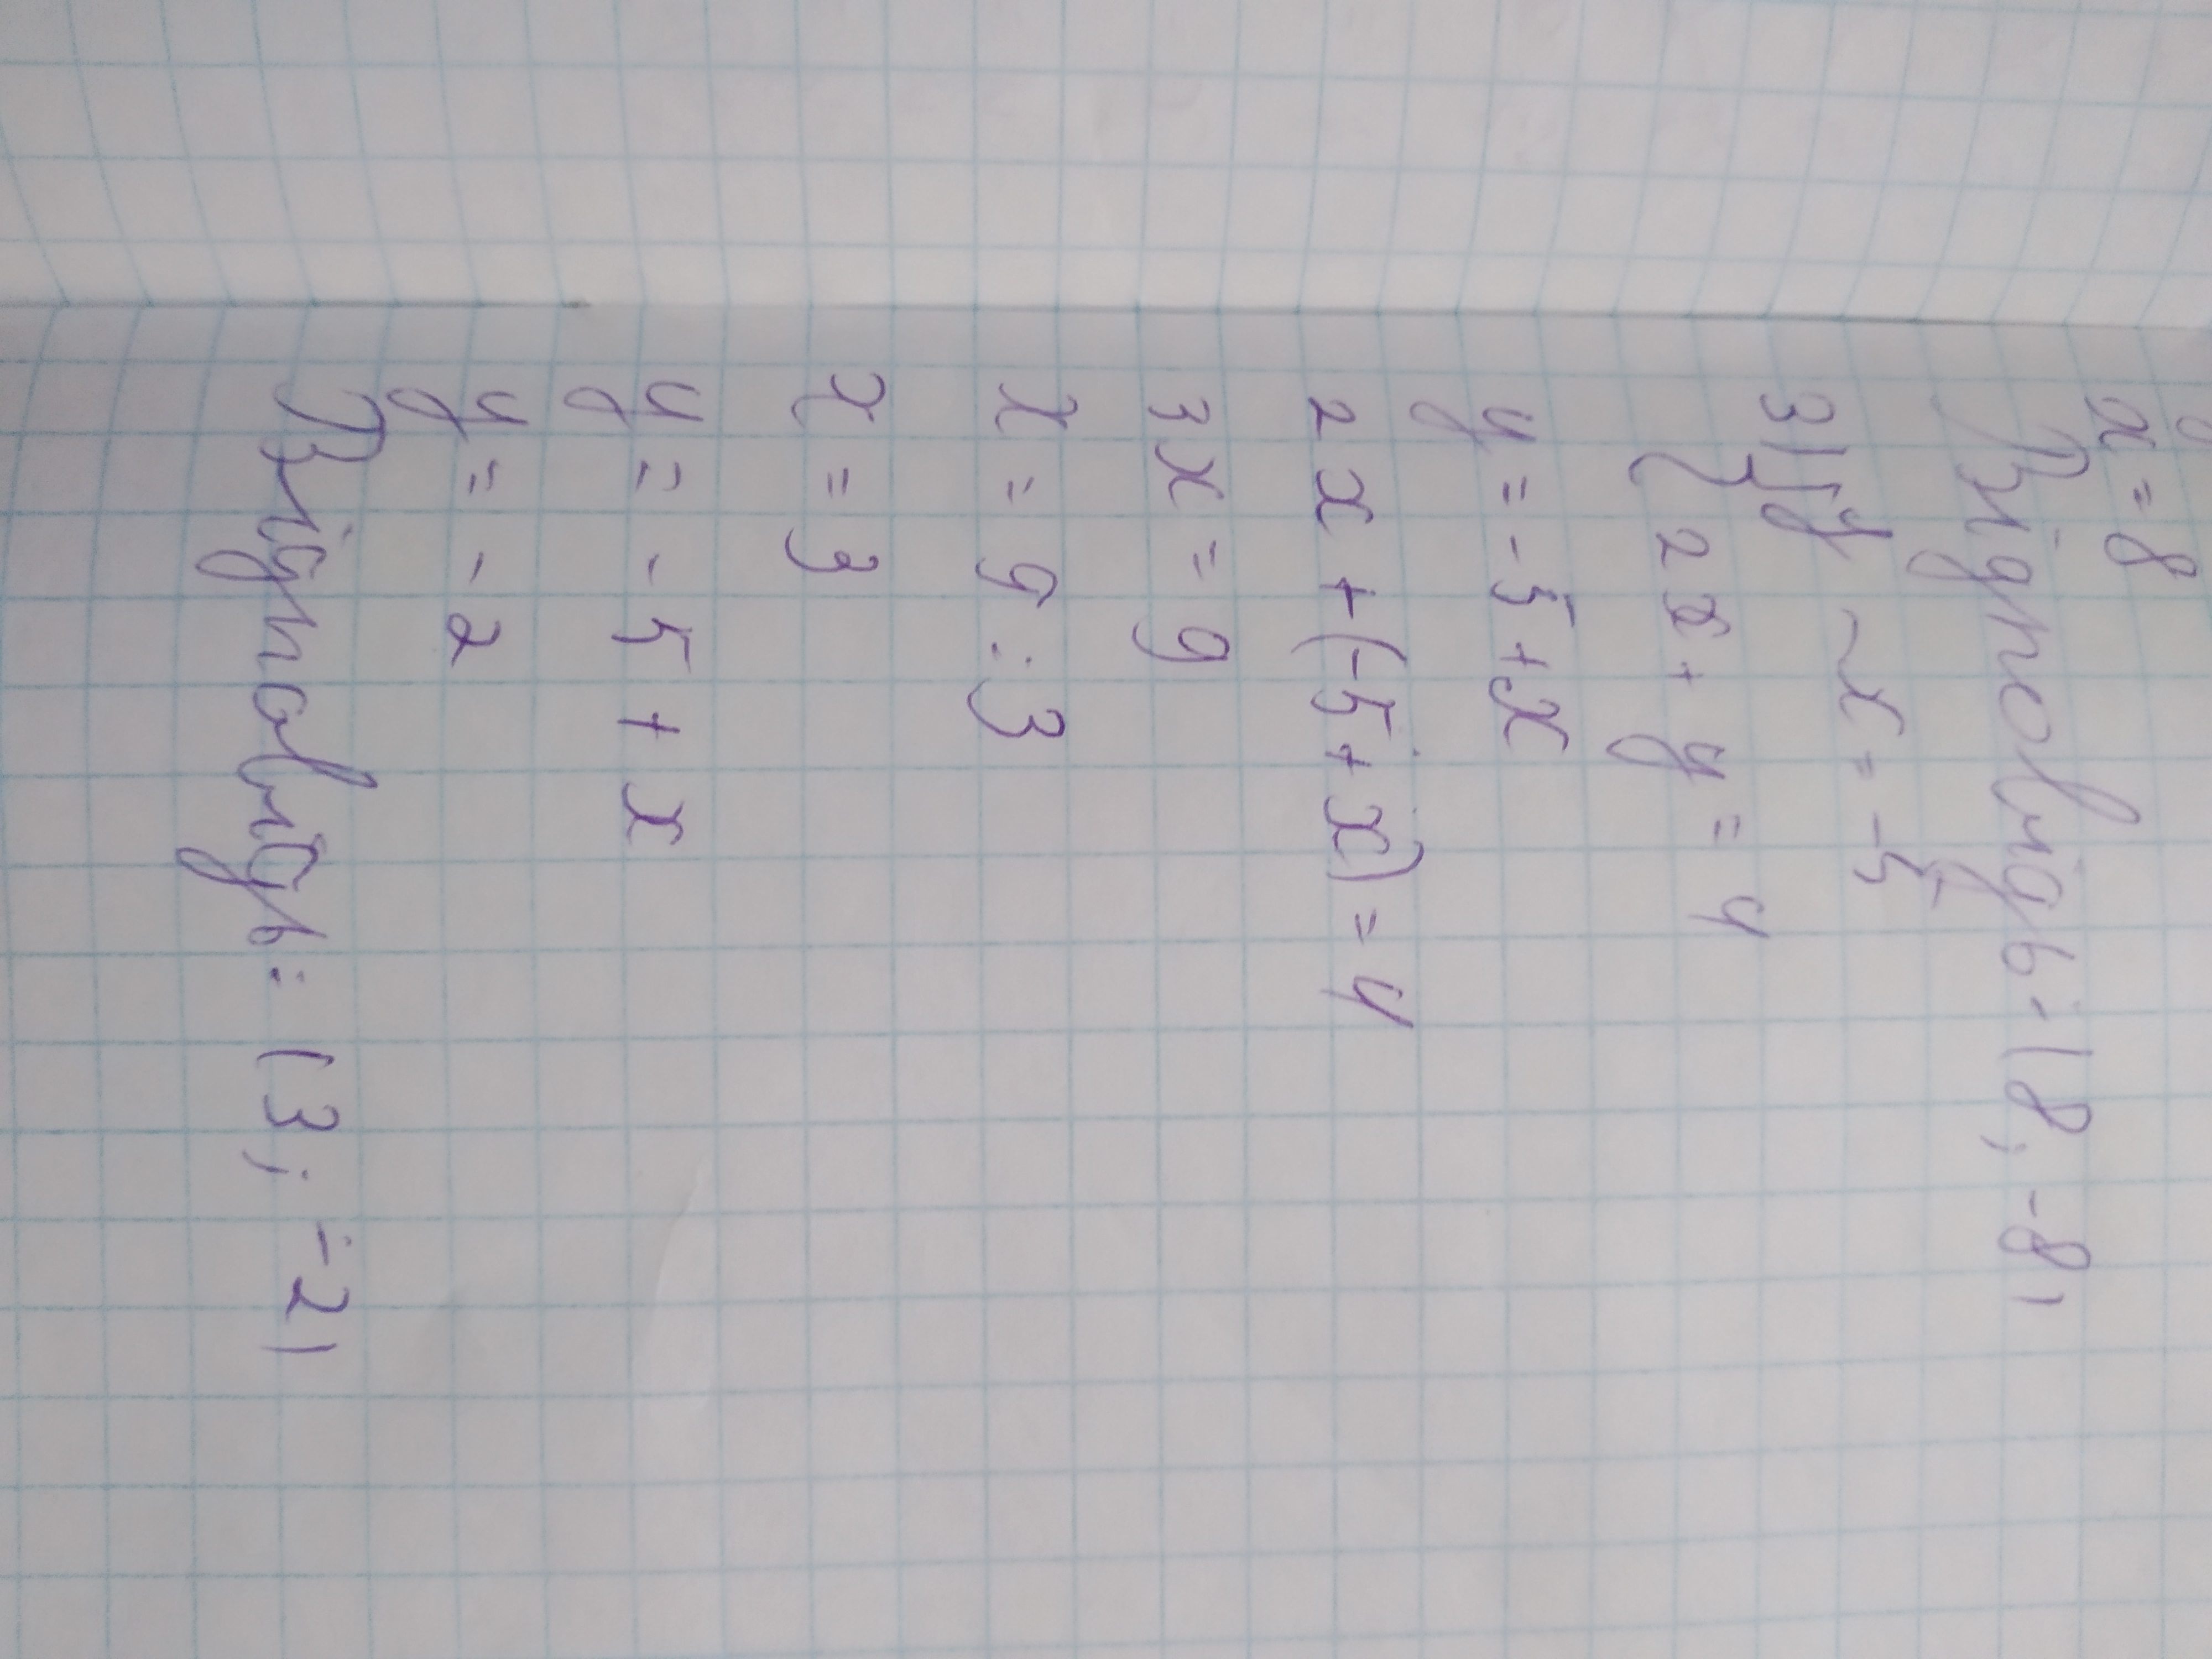 x = 8
Відповідь: (8; -8)
3) { y - x = -5
{ 2x + y = 4
y = -5 + x
2x + (-5 + x) = 4
3x = 9
x = 9 : 3
x = 3
y = -5 + x
y = -2
Відповідь: (3; -2)